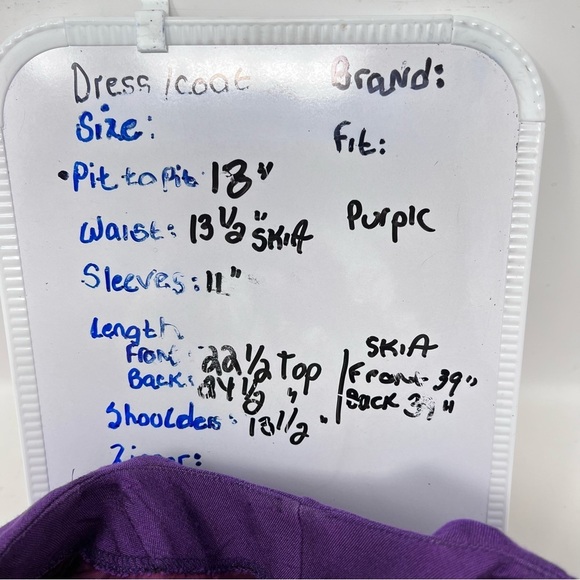 Dress/coat
Brand:
Size:
Fit:
• Pit to Pit: 18"
Waist: 13 1/2" Skirt
Purple
Sleeves: 11"
Length
Front: 22 1/2 Top
Back: 24 1/2 "
Skirt
Front- 39"
Back 39"
Shoulders: 13 1/2 "